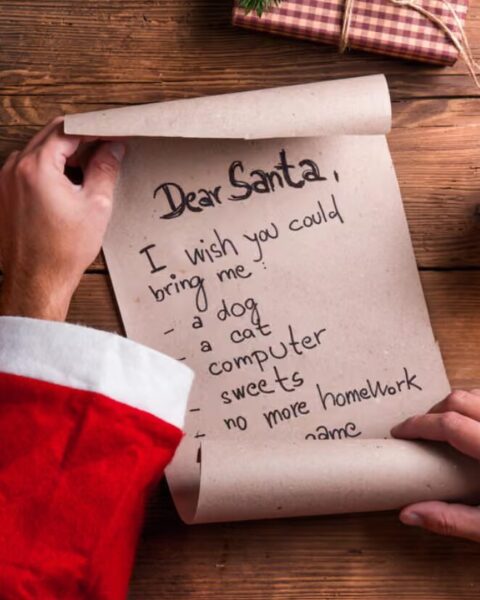 Dear Santa,
I wish you could
bring me :
- a dog
- a cat
computer
- sweets
- no more homework